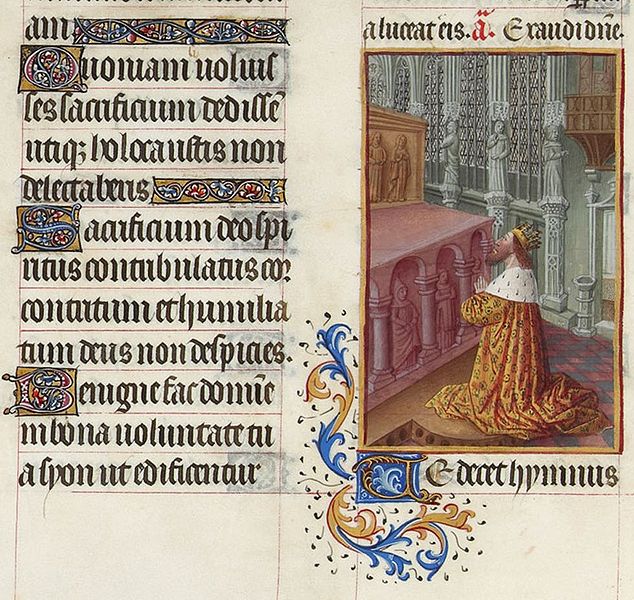 am
Quoniam voluis
ses sacrificium dedissē
utiqꝫ holocaustis non
delectaberis
Sacrificium deo spi
ritus contribulatus cor
contritum et humilia
tum deus non despicies.
Benigne fac domīe
in bona voluntate tu
a syon ut edificentur
a luceat eis. a Exaudi dn̄e.
Te decet hymnus